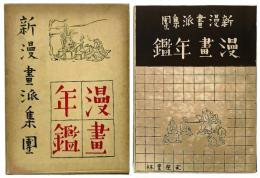 新漫畫派集團
漫畫
年鑑
新漫畫派集團
漫畫年鑑